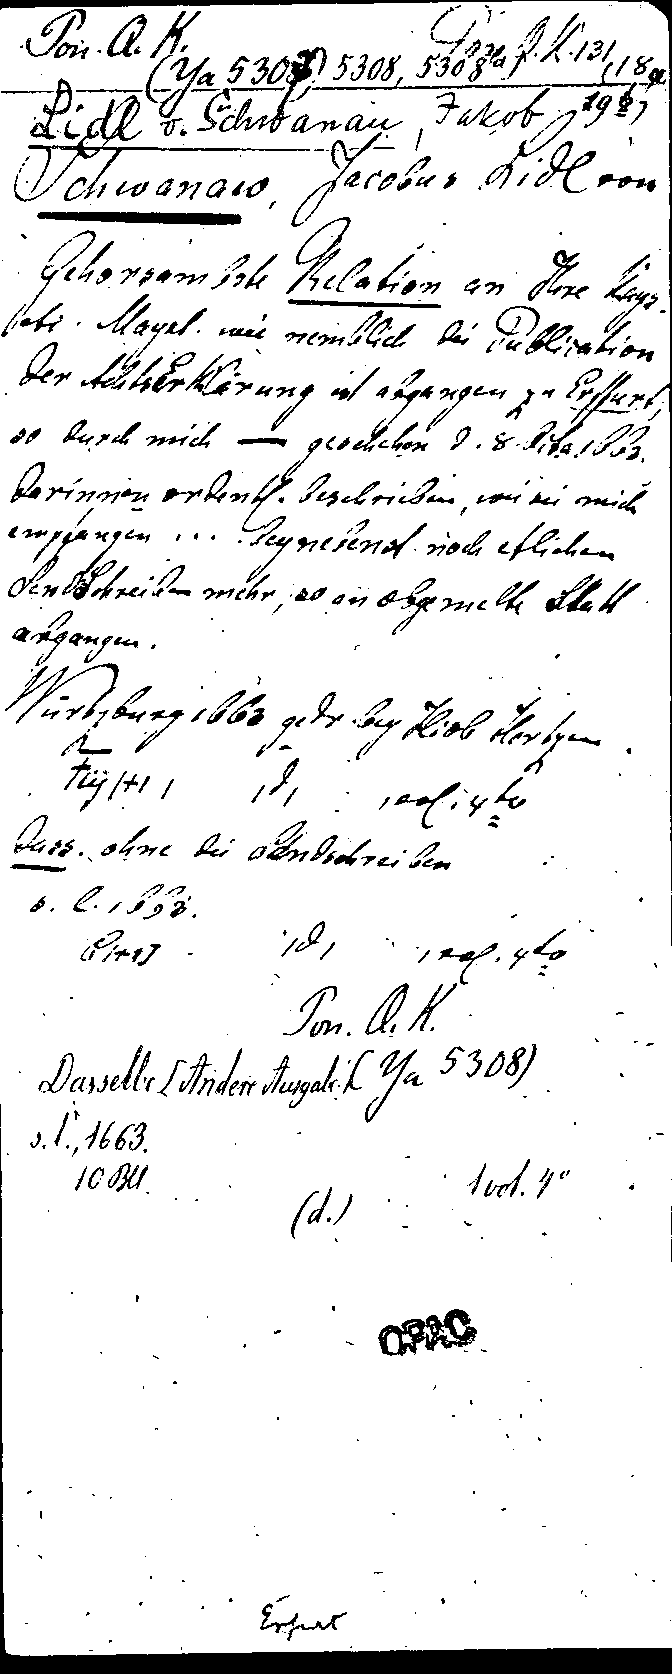 Pon. Q. K.
(Ya 5307) 5308, 5308a)
Lidl v. Schwanau, Jakob
Schwanaw, Jacobus Lidl von
Gehorsambste Relation an Ihre Kays.
Mayst. wie nemblich die Publication
der AchtsErklärung ist abgangen zu Erffurt,
so durch mich — geschehen d. 8. 1663.
darinnen ordentl. beschrieben, wie sie mich
empfangen ... beynebenst noch etlichen
SendSchreiben mehr, so an obgemelte Statt
abgangen.
Würtzburg 1663 gedr. bey Hiob Hertzen.
1 vol. 4to
Dass. ohne die Sendschreiben
s. l. 1663.
1 vol. 4to
Pon. Q. K.
Dasselbe [Andere Ausgabe] (Ya 5308)
s. l., 1663.
10 Bll.
1 vol. 4°
(d.)
OPAC
Erfurt